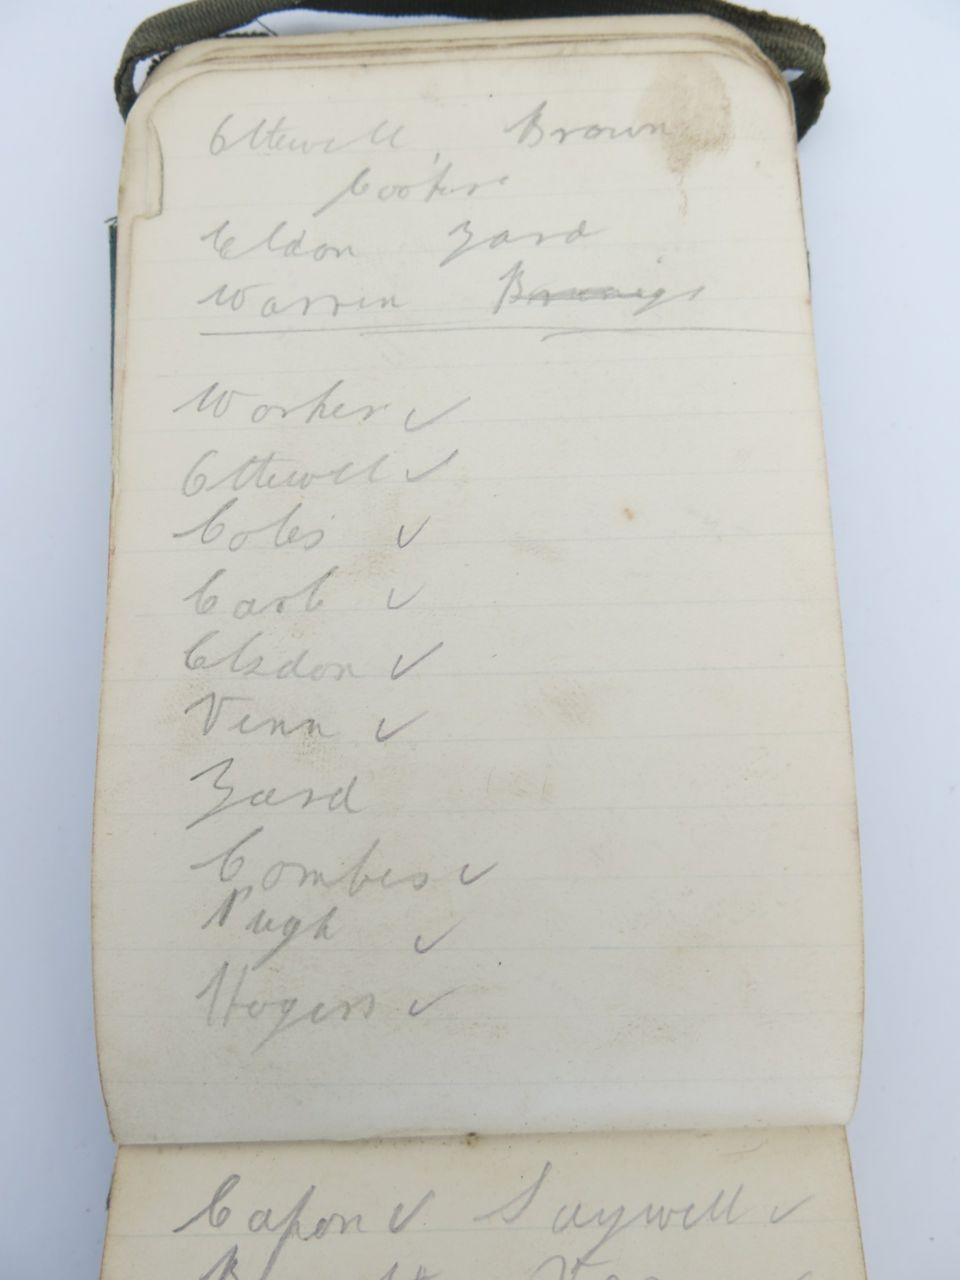 Ottewell Brown
Eldon Zard
Warren
Worher ✓
Ottewell ✓
Coles ✓
Carl ✓
Elsdon ✓
Venn ✓
Zard
Combes ✓
Pugh ✓
Hogers ✓
Capon ✓ Saywell ✓